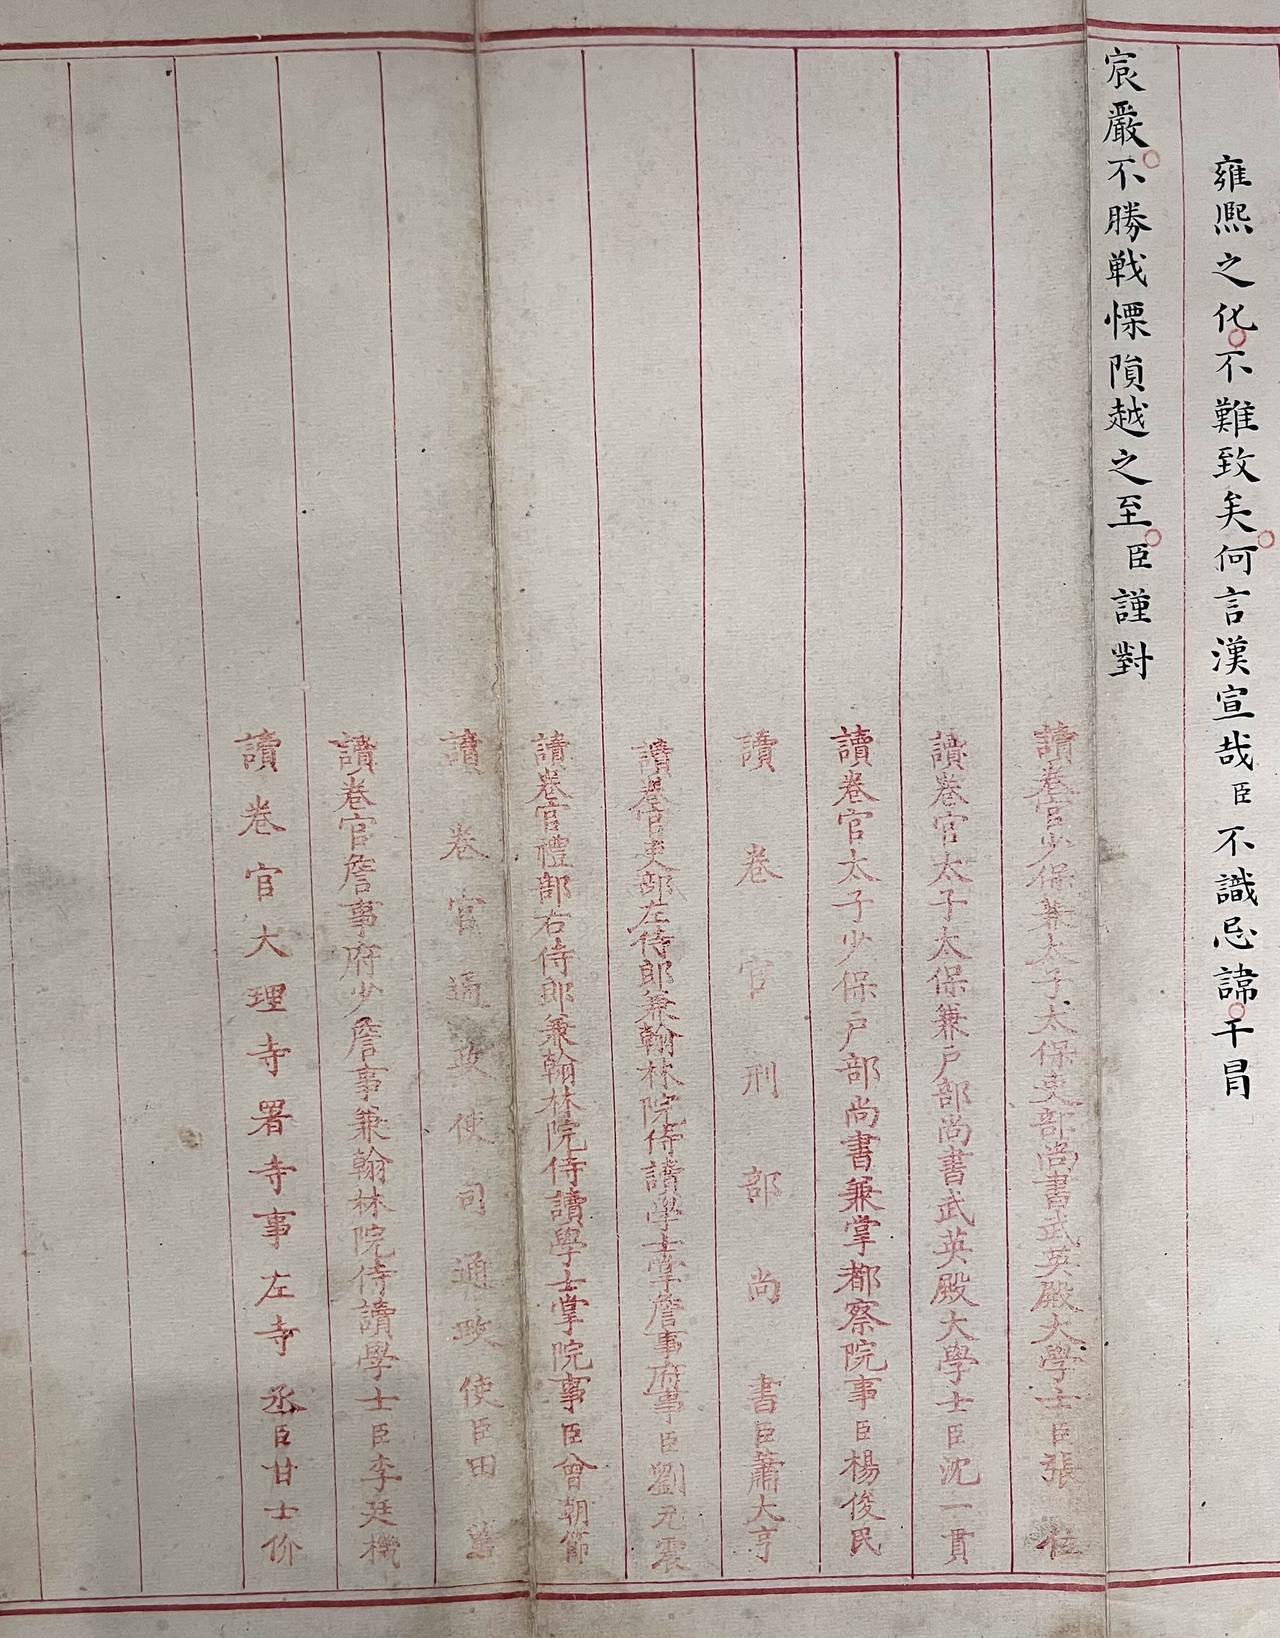 雍熙之化不難致矣何言漢宣哉臣不識忌諱干冒
宸嚴不勝戰慄隕越之至臣謹對
讀卷官少保兼太子太保吏部尚書武英殿大學士臣張位
讀卷官太子太保兼戶部尚書武英殿大學士臣沈一貫
讀卷官太子少保戶部尚書兼掌都察院事臣楊俊民
讀卷官刑部尚書臣蕭大亨
讀卷官吏部左侍郎兼翰林院侍讀學士掌詹事府事臣劉元震
讀卷官禮部右侍郎兼翰林院侍讀學士掌院事臣曾朝節
讀卷官通政使司通政使臣田蕙
讀卷官詹事府少詹事兼翰林院侍讀學士臣李廷機
讀卷官大理寺署寺事左寺丞臣甘士价